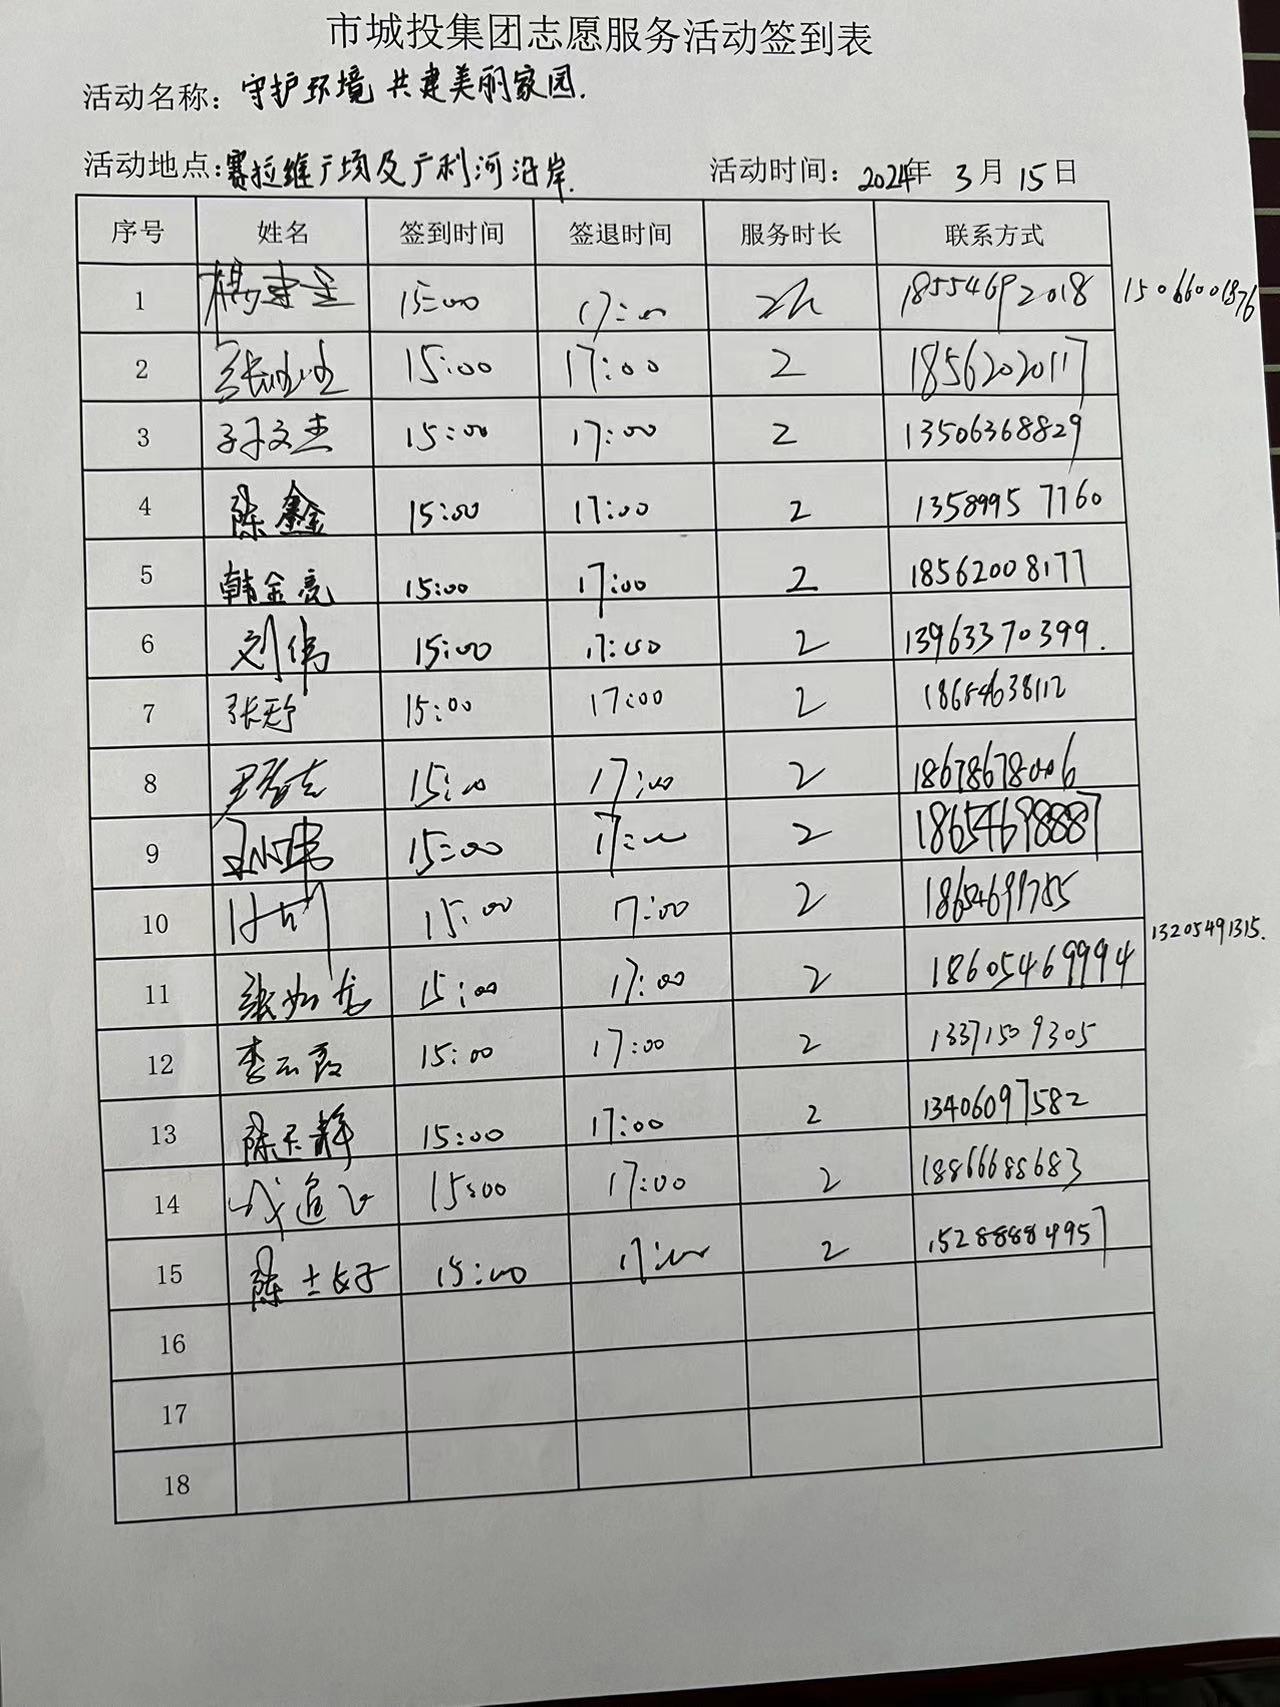 市城投集团志愿服务活动签到表
活动名称：守护环境 共建美丽家园.
活动地点：赛拉维广场及广利河沿岸. 活动时间：2024年 3月 15日
序号 姓名 签到时间 签退时间 服务时长 联系方式
1 15:00 17:00 2h 18554692018 15066001876
2 15:00 17:00 2 18562020117
3 孙文杰 15:00 17:00 2 13506368829
4 陈鑫 15:00 17:00 2 13589957760
5 韩金亮 15:00 17:00 2 18562008177
6 刘伟 15:00 17:00 2 13963370399.
7 15:00 17:00 2 18654638112
8 15:00 17:00 2 18678678006
9 15:00 17:00 2 18654698887
10 15:00 17:00 2
13205491315.
11 15:00 17:00 2 18605469994
12 李云霞 15:00 17:00 2 13371509305
13 陈玉静 15:00 17:00 2 13406097582
14 15:00 17:00 2 18866688683
15 15:00 17:00 2 15288884957
16
17
18